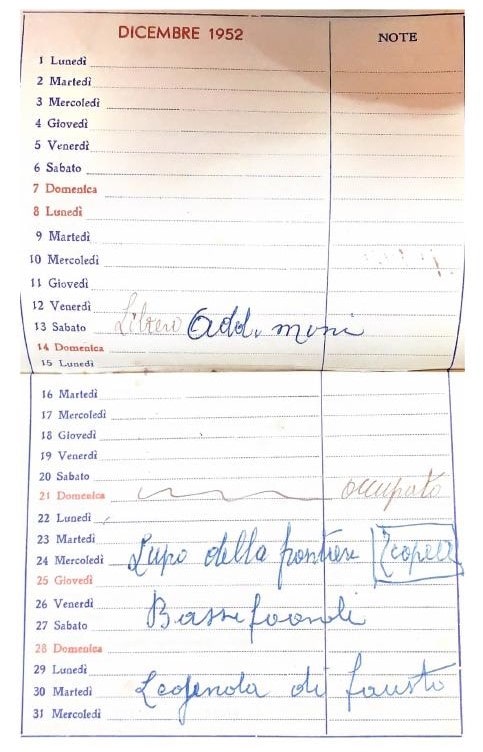 DICEMBRE 1952 NOTE
1 Lunedì
2 Martedì
3 Mercoledì
4 Giovedì
5 Venerdì
6 Sabato
7 Domenica
8 Lunedì
9 Martedì
10 Mercoledì
11 Giovedì
12 Venerdì
13 Sabato Libero Add. moni
14 Domenica
15 Lunedì
16 Martedì
17 Mercoledì
18 Giovedì
19 Venerdì
20 Sabato
21 Domenica occupato
22 Lunedì
23 Martedì
24 Mercoledì Lupo della frontiera
25 Giovedì
26 Venerdì
27 Sabato Bassifondi
28 Domenica
29 Lunedì
30 Martedì Leggenda di fausto
31 Mercoledì